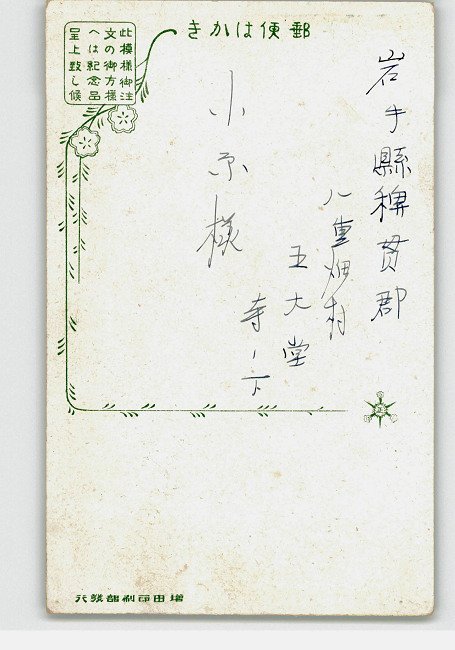 郵便はかき
此模様御注
文の御方様
へは紀念品
呈上致し候
岩手縣稗貫郡
八重畑村
五大堂
寺ノ下
小原様
増田印刷部發行